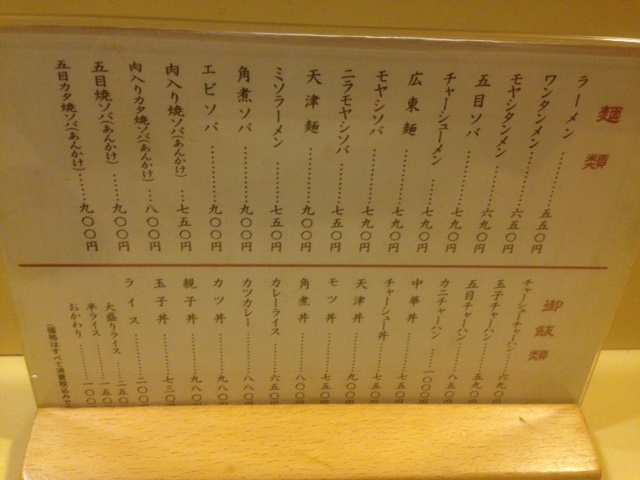 麺類
ラーメン………五五〇円
ワンタンメン……六五〇円
モヤシタンメン……六九〇円
五目ソバ………七九〇円
チャーシューメン……七九〇円
広東麺………九〇〇円
モヤシソバ………七九〇円
ニラモヤシソバ……七五〇円
天津麺………九〇〇円
ミソラーメン………七五〇円
角煮ソバ………九〇〇円
エビソバ………九〇〇円
肉入り焼ソバ(あんかけ)……七五〇円
肉入りカタ焼ソバ(あんかけ)……八〇〇円
五目焼ソバ(あんかけ)……九〇〇円
五目カタ焼ソバ(あんかけ)……九〇〇円
御飯類
チャーシューチャーハン……六九〇
玉子チャーハン……五九〇
五目チャーハン……八五〇
カニチャーハン……一〇〇〇
中華丼………七五〇
チャーシュー丼……七五〇
天津丼………九〇〇
モツ丼………七五〇
角煮丼………八〇〇
カレーライス……六五〇
カツカレー………八八〇
カツ丼………九八〇
親子丼………九八〇
玉子丼………七三〇
ライス………二〇〇
大盛りライス……二五〇
半ライス………一五〇
おかわり………一〇〇
(価格はすべて消費税込みで